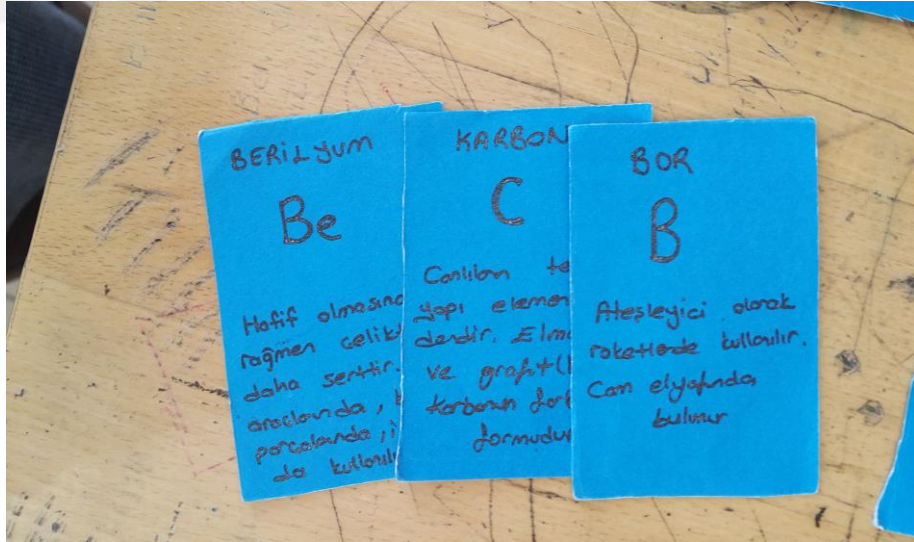 BERİLYUM
Be
Hafif olmasına
rağmen çelikt
daha serttir.
araçlarında,
parçalarında, i
da kullanılı
KARBON
C
Canlıların te
yapı elemen
derdir. Elma
ve grafit(
karbonun fark
formudur
BOR
B
Ateşleyici olarak
roketlerde kullanılır.
Cam elyafında
bulunur